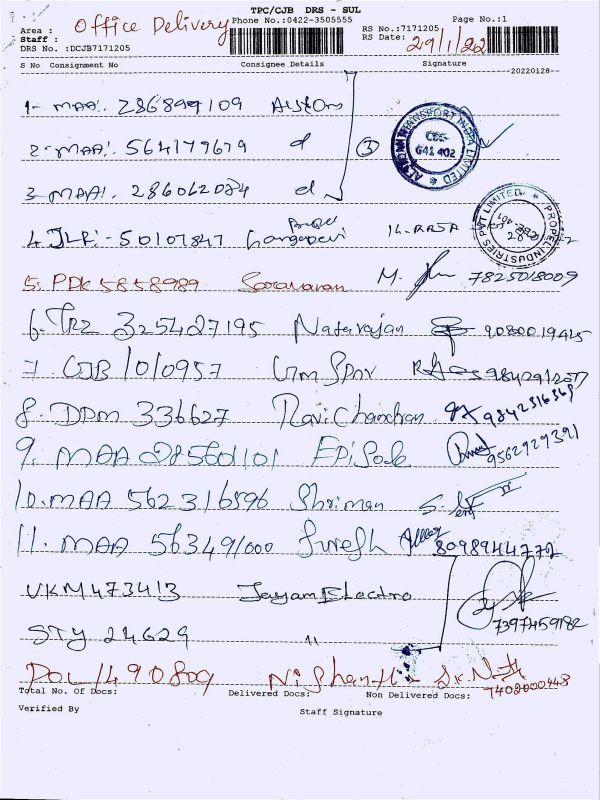 TPC/CJB DRS - SUL
Area : Office Delivery Phone No.:0422-3505555 RS No.:7171205 Page No.:1
Staff : RS Date: 29/1/22
DRS No. :DCJB7171205
S No Consignment No Consignee Details Signature
20220128
1- MAA: 286899109
2- MAA: 564179679 d
3- MAA: 286062084 d
③
CBE-
641 402
4. JLR:- 50107847
PROPEL INDUSTRIES PVT LIMITED
5. PDK 5858989 Saravanan M. 7825018009
6. TRZ 325427195 Natarajan 9080019425
7. CJB 1010957
8. DDM 336627 Ravichandran 9842316368
9. MAA 285601101 Episode 9562929391
10. MAA 562316896 Shriman S.
11. MAA 563491000 Suresh 8098944772
VKM473413 Jayam Electro
STY 24629 11 7397459182
POL 1490809 Nishanth 7402000448
Total No. of Docs: Delivered Docs: Non Delivered Docs:
Verified By Staff Signature